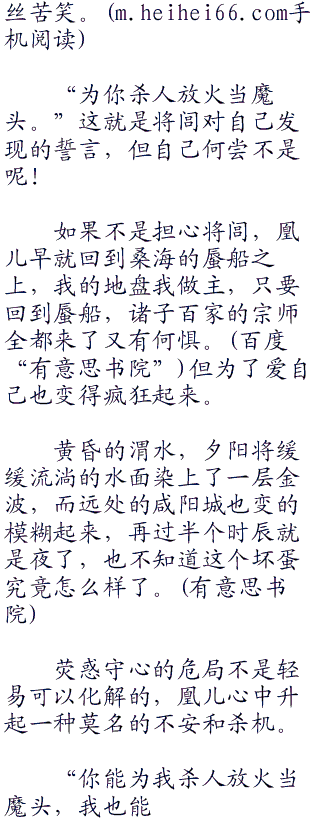 丝苦笑。(m.heihei66.com手
机阅读)
“为你杀人放火当魔
头。”这就是将闾对自己发
现的誓言，但自己何尝不是
呢！
如果不是担心将闾，凰
儿早就回到桑海的蜃船之
上，我的地盘我做主，只要
回到蜃船，诸子百家的宗师
全都来了又有何惧。(百度
“有意思书院”)但为了爱自
己也变得疯狂起来。
黄昏的渭水，夕阳将缓
缓流淌的水面染上了一层金
波，而远处的咸阳城也变的
模糊起来，再过半个时辰就
是夜了，也不知道这个坏蛋
究竟怎么样了。(有意思书
院)
荧惑守心的危局不是轻
易可以化解的，凰儿心中升
起一种莫名的不安和杀机。
“你能为我杀人放火当
魔头，我也能